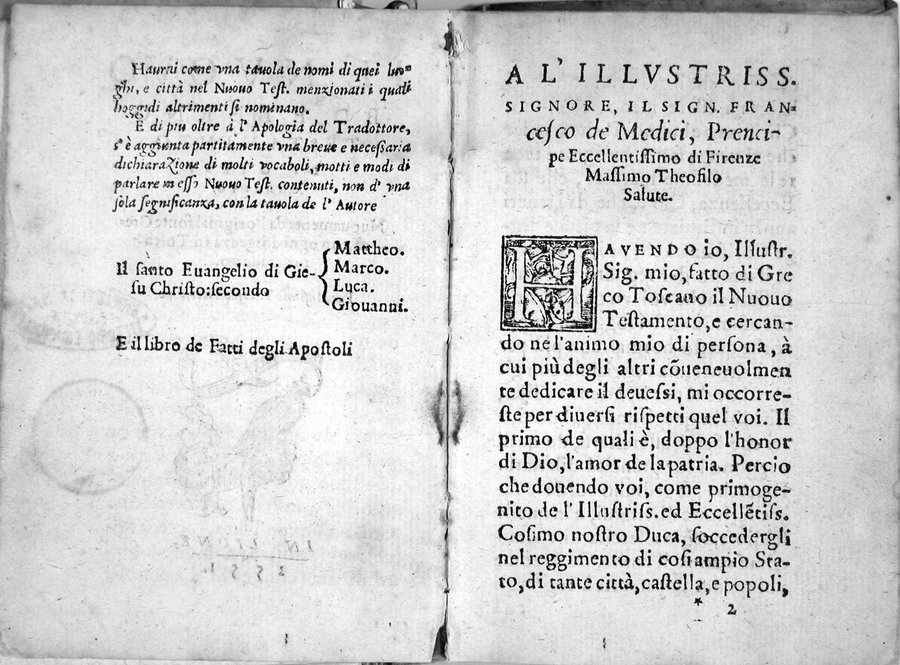 Haurai come vna tauola de nomi di quei luo-
ghi, e città nel Nuouo Test. menzionati i quali
hoggidi altrimenti si nominano.
E di piu oltre à l'Apologia del Tradottore,
s'è aggiunta partitamente vna breue e necessaria
dichiarazione di molti vocaboli, motti e modi di
parlare in esso Nuouo Test. contenuti, non d'vna
sola segnificanza, con la tauola de l'Autore
Il santo Euangelio di Gie-
su Christo: secondo
Mattheo.
Marco.
Luca.
Giouanni.
E il libro de Fatti degli Apostoli
A L'ILLVSTRISS.
SIGNORE, IL SIGN. FRAN-
cesco de Medici, Prenci-
pe Eccellentissimo di Firenze
Massimo Theofilo
Salute.
HAVENDO io, Illustr.
Sig. mio, fatto di Gre
co Toscano il Nuouo
Testamento, e cercan-
do ne l'animo mio di persona, à
cui più degli altri cõueneuolmen
te dedicare il deuessi, mi occorre-
ste per diuersi rispetti quel voi. Il
primo de quali è, doppo l'honor
di Dio, l'amor de la patria. Percio
che douendo voi, come primoge-
nito de l'Illustriss. ed Eccellẽtiss.
Cosimo nostro Duca, soccedergli
nel reggimento di cosi ampio Sta-
to, di tante città, castella, e popoli,
* 2